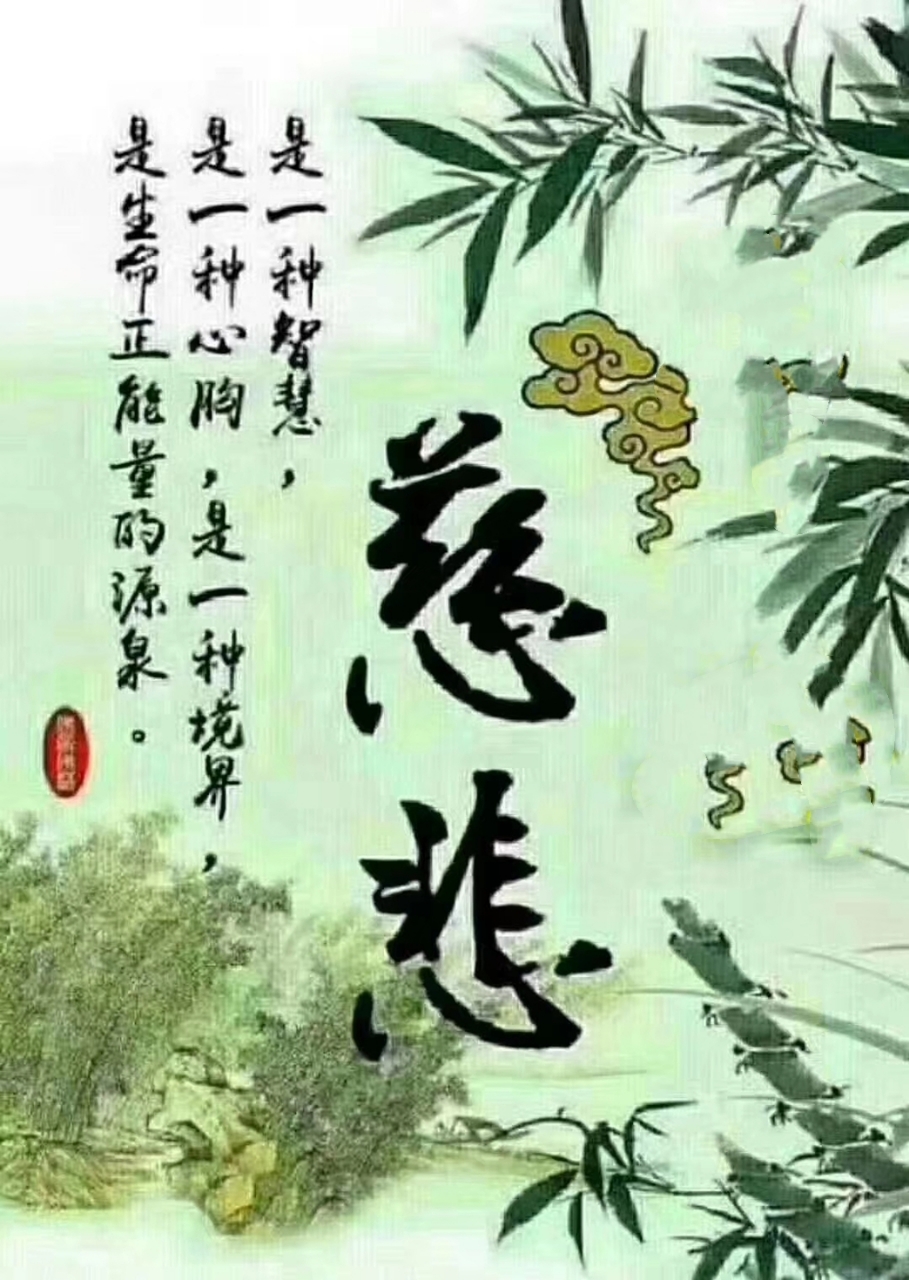 慈悲
是一种智慧，
是一种心胸，是一种境界，
是生命正能量的源泉。